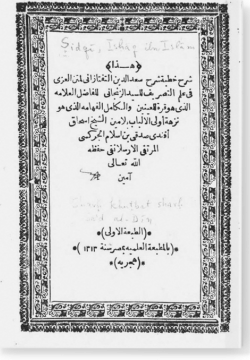 Ṣidqī, Isḥāq ibn Islām
﴿ هـذا ﴾
شرح خطبة شرح سعد الدين التفتازانى لمتن العزى
فى علم التصريف للسيد الزنجانى للفاضل العلامه
الذى هو قرة للعينين والكامل الفهامه الذى هو
نزهة أولى الالباب لامين الشيخ اسحاق
أفندى صدقى بن اسلام الجركسى
الارسلانى حفظه
الله تعالى
آمين
Sharḥ khuṭbat sharḥ
Sa'd al-Dīn
﴿الطبعة الاولى﴾
﴿بالمطبعة العلميه بمصر سنة ١٣١٣﴾
﴿هجريه﴾